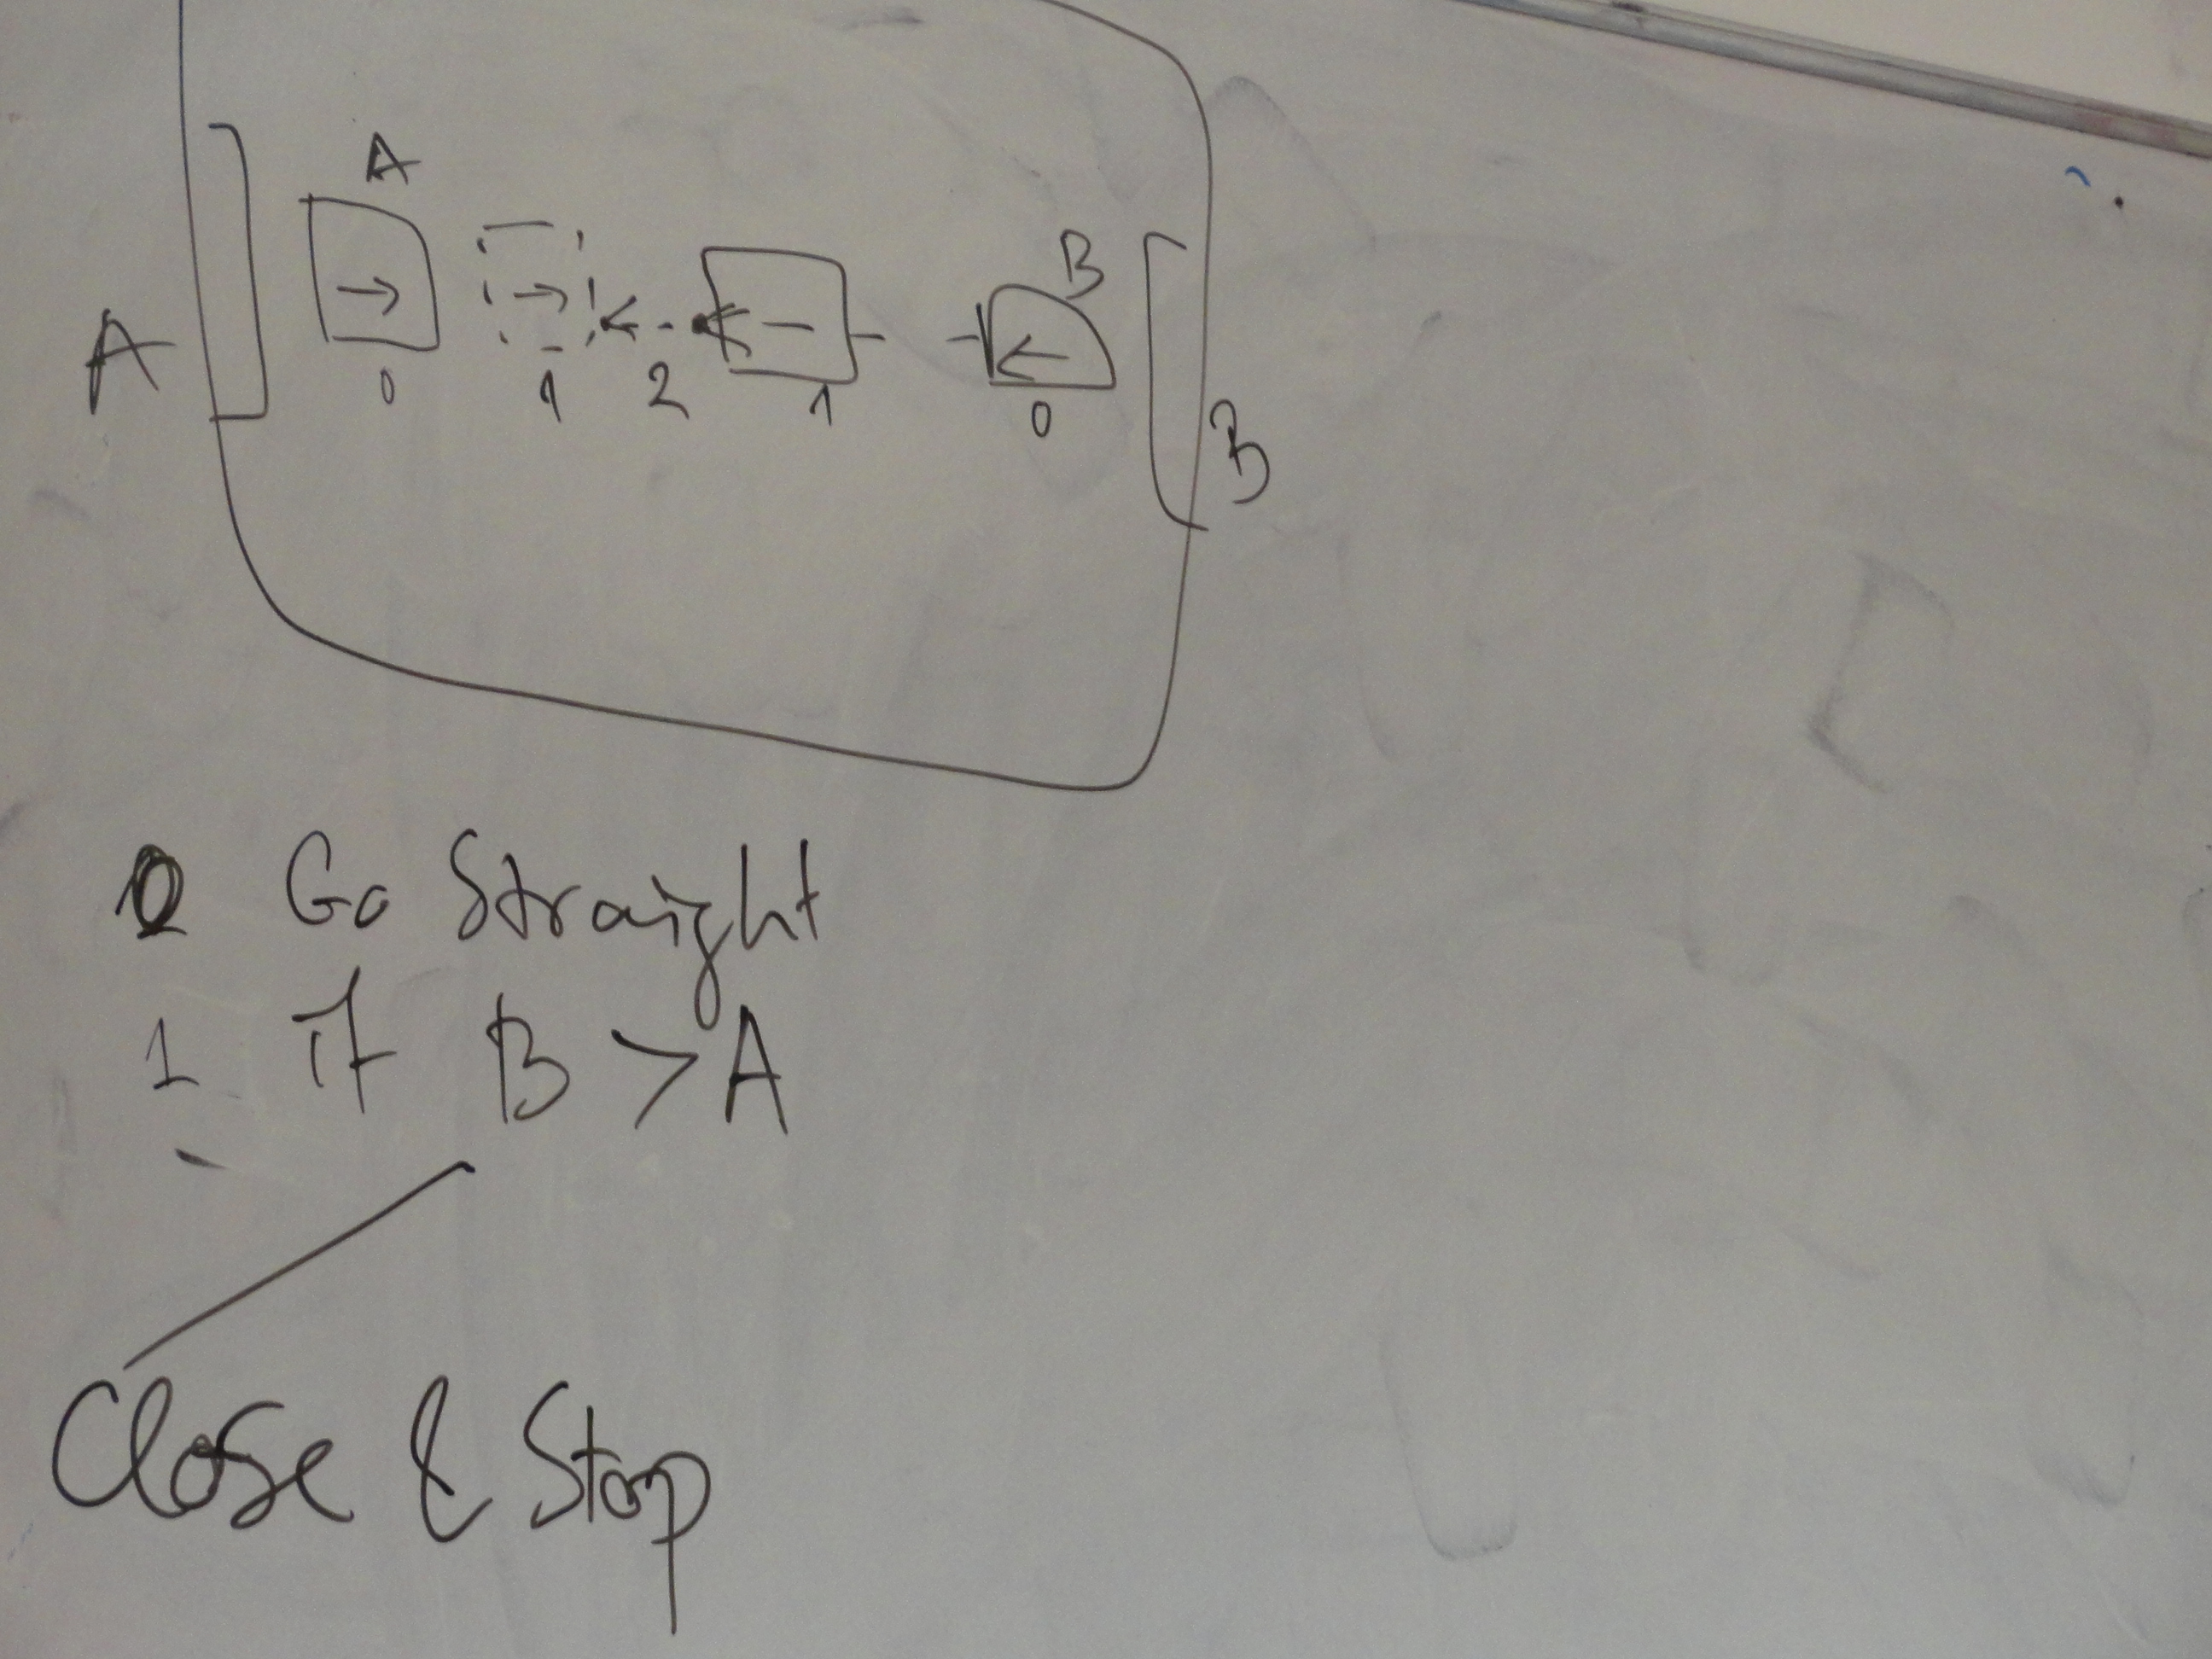 A
B
A
0 1 2 1 0
B
0 Go Straight
1 if B > A
Close & Stop